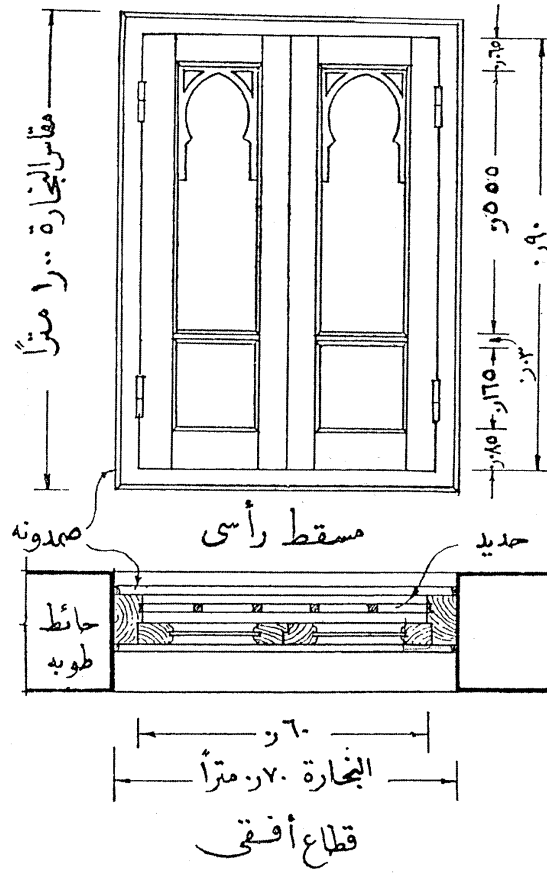 مقاس النجارة ١٫٠٠ متراً
٠٫٠٦٥
٠٫٥٥٥
٠٫٩٠
٠٫٠٣
٠٫١٦٥
٠٫٠٨٥
مسقط رأسى
صمدونه
حديد
حائط
طوبه
٠٫٦٠
النجارة ٠٫٧٠ متراً
قطاع أفقى